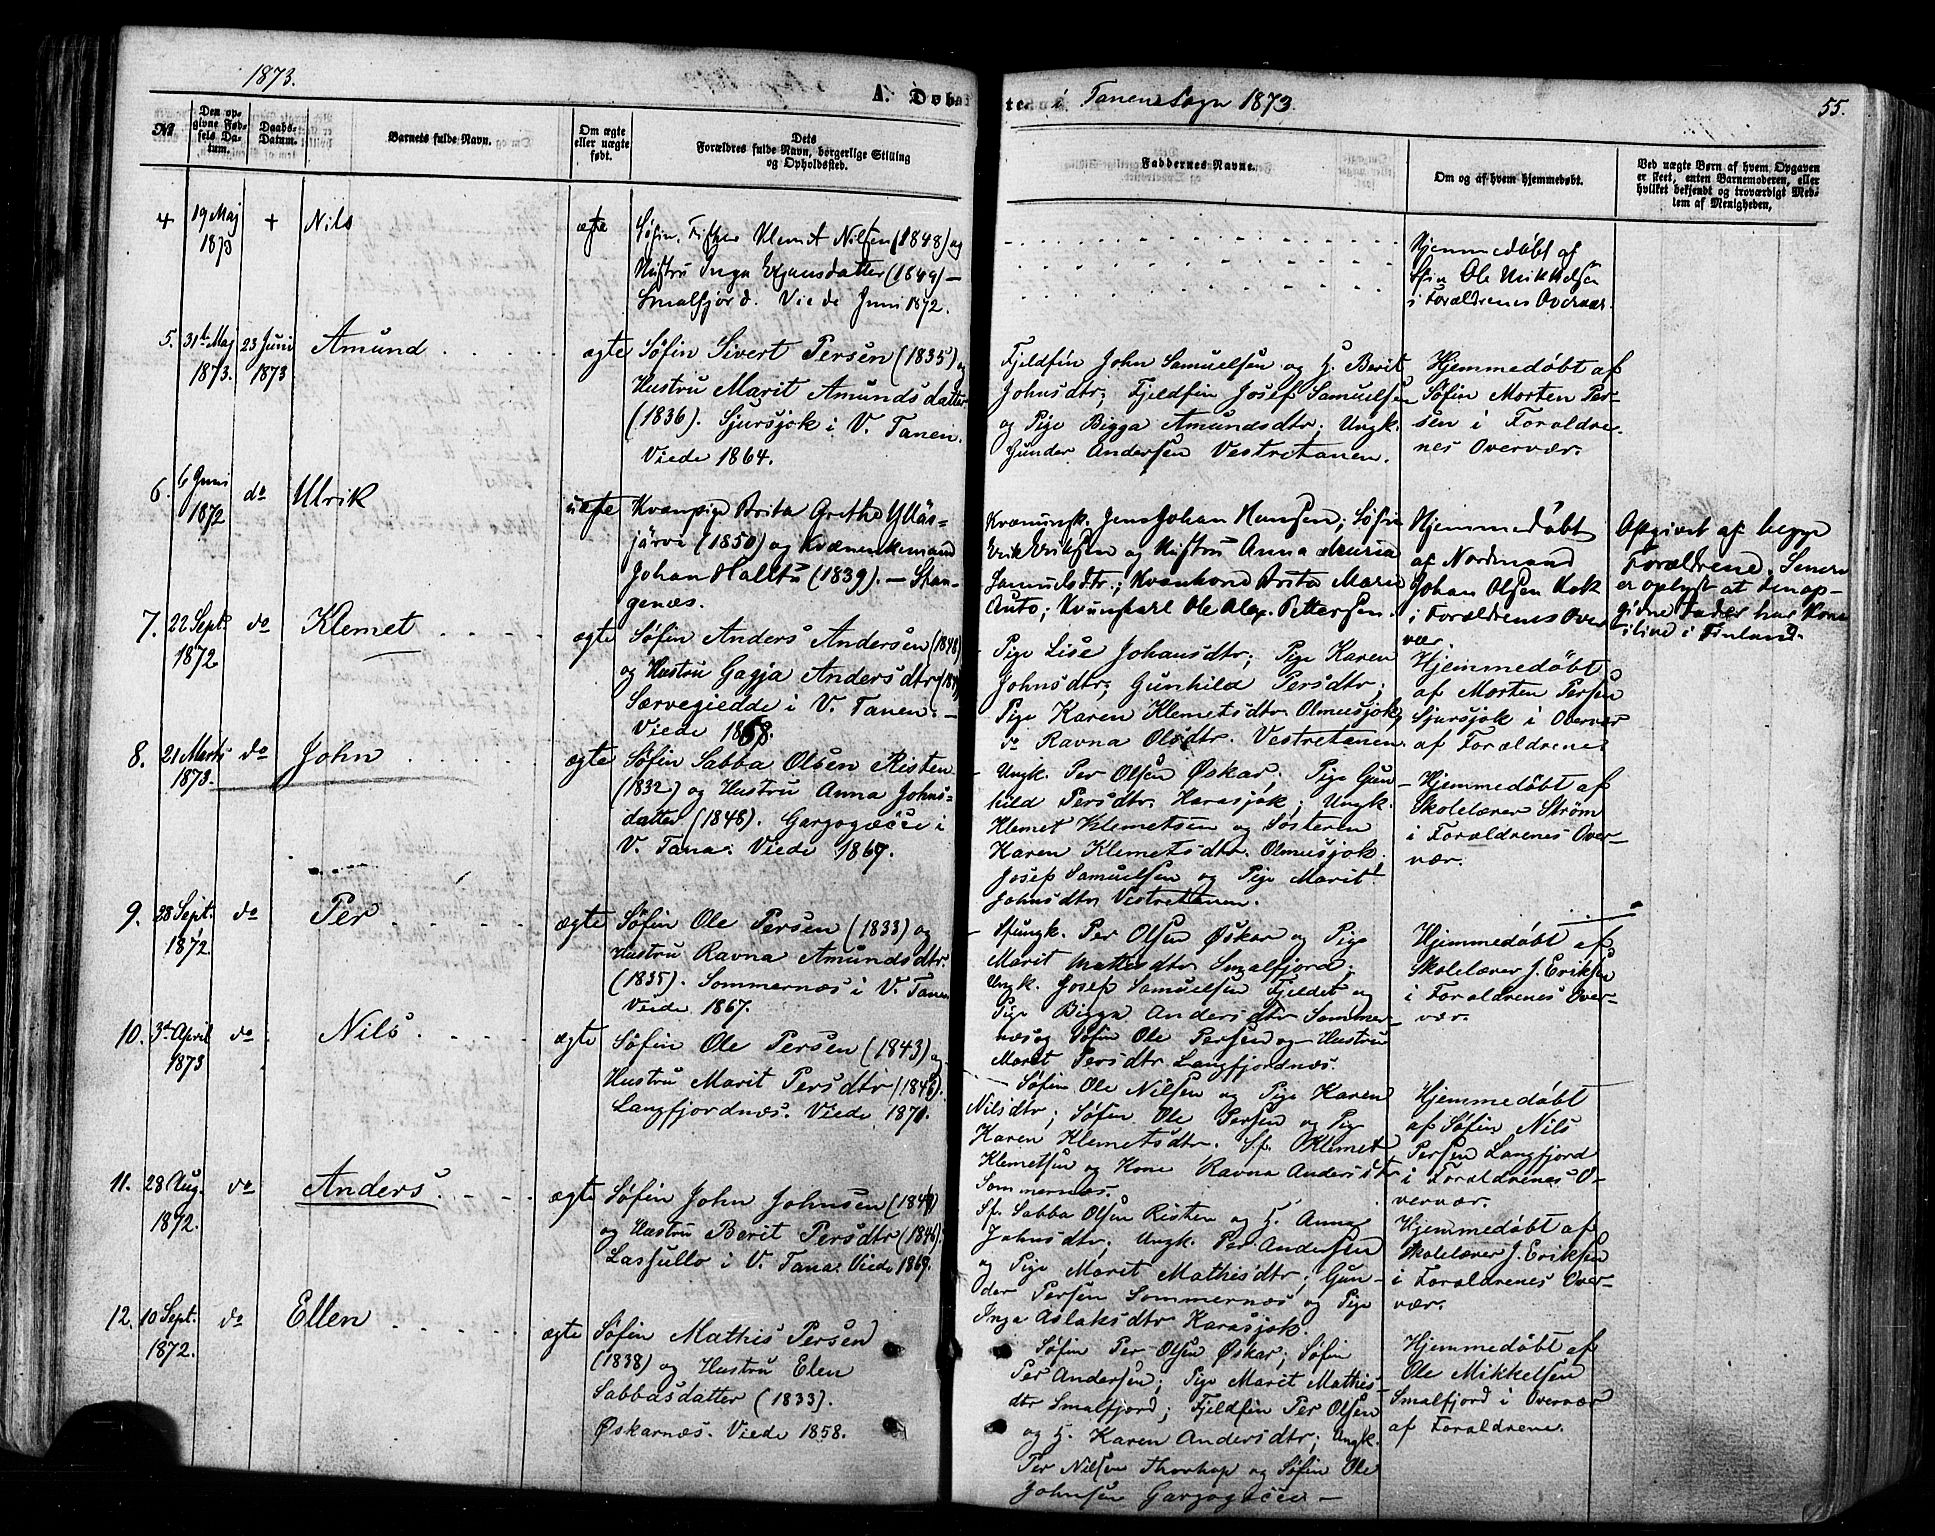 1873.
A. Døbte
i Tanens Sogn 1873.
55.
№
Den op-
givne Fød-
sels Da-
tum.
Daabs-
Datum.
Barnets fulde Navn.
Om ægte
eller uægte
født.
Dets
Forældres fulde Navn, borgerlige Stilling
og Opholdssted.
Faddernes Navne.
Om og af hvem hjemmedøbt.
Ved uægte Børn af hvem Opgaven
er skeet, enten Barnemoderen, eller
hvilket bekjendt og troværdigt Med-
lem af Menigheden,
4
19 Maj
1873
+
Nils
ægte
Søfin. Fisker Klemet Nilsen (1848) og
Hustru Inga (1849) –
Smalfjord. Viede Juni 1872.
Hjemmedøbt af
Sfin Ole Mikkelsen
i Forældrenes Overvær.
5.
31te Maj
1873.
23 Juni
1873
Amund
ægte
Søfin Sivert Persen (1835) og
Hustru Marit Amundsdatter
(1836). Sjursjok i V. Tanen.
Viede 1864.
Fjeldfin John Samuelsen og H. Berit
Johnsdtr; Fjeldfin Josef Samuelsen
og Pige Bigga Amundsdtr; Ungk.
Gunder Andersen Vestretanen.
Hjemmedøbt af
Søfin Morten Per-
sen i Foraldre-
nes Overvær.
6.
6 Juni
1872
do
Ulrik
uægte
Kvænpige Brita Grethe Ylläs-
järvi (1850) og Kvænenkemand
Johan Halltu (1839). – Stan-
genæs.
Kvænungk. Jens Johan Hansen; Søfin
Erik Eriksen og Hustru Anna Maria
Samuelsdtr; Kvænkone Brita Maria
Auto; Kvænkarl Ole Alex. Pettersen.
Hjemmedøbt
af Nordmand
Johan Olsen Kok
i Forældrenes Over
vær.
Opgivet af begge
Forældrene. Senere
er oplyst at den op-
givne Fader har Kone
ilive i Finland.
7.
22 Sept.
1872
do
Klemet
ægte
Søfin Anders Andersen (1848)
og Hustru Gagja Andersdtr
Særvegiedde i V. Tanen. –
Viede 1868.
Pige Lise Johansdtr; Pige Karen
Johnsdtr; Gunhild Persdtr;
Pige Karen Klemetsdtr Olmusjok;
do Ravna Olsdtr. Vestretanen.
Hjemmedøbt
af Morten Persen
Sjursjok i Overvær
af Foraldrenes
8.
21 Marts
1873.
do
John
ægte
Søfin Sabba Olsen Risten
(1832) og Hustru Anna Johns-
datter (1848). Gargogæcce i
V. Tana. Viede 1869.
Ungk. Per Olsen Øskar. Pige Gun-
hild Persdtr Karasjok; Ungk.
Klemet Klemetsen og Søsteren
Karen Klemetsdtr. Olmusjok;
Josef Samuelsen og Pige Marit
Johnsdtr Vestretanen.
Hjemmedøbt af
Skolelærer Strøm
i Foraldrenes Over-
vær.
9.
28 Sept.
1872.
do
Per
ægte
Søfin Ole Persen (1833) og
Hustru Ravna Amundsdtr.
(1835). Sommernæs i V. Tanen
Viede 1867.
Sfungk. Per Olsen Øskar og Pige
Marit Mathisdtr Smalfjord;
Ungk. Josef Samuelsen Fjeldet og
Pige Bigga Andersdtr Sommer-
næs og Søfin Ole Persen og Hustru
Maret Persdtr Langfjordnæs.
Hjemmedøbt af
Skolelærer J. Eriksen
i Foraldrenes Over-
vær.
10.
3de April
1873
do
Nils
ægte
Søfin Ole Persen (1843) og
Hustru Marit Persdtr (1846).
Langfjordnæs. Viede 1870.
Søfin Ole Nilsen og Pige Karen
Nilsdtr; Søfin Ole Persen og Pige
Karen Klemetsdtr. Sf. Klemet
Klemetsen og Kone Ravna Andersdtr
Sommernæs.
Hjemmedøbt
af Søfin Nils
Persen Langfjord
i Foraldrenes O-
vervær.
11.
28 Aug.
1872.
do
Anders
ægte
Søfin John Johnsen
og Hustru Berit Persdtr (1846).
Lassullo i V. Tana. Viede 1869.
Sf. Sabba Olsen Risten og H. Anna
Johnsdtr; Ungk. Per Andersen
og Pige Marit Mathisdtr; Gun-
der Persen Sommernæs og Pige
Inga Aslaksdtr Karasjok.
Hjemmedøbt af
Skolelærer J. Eriksen
i Foraldrenes Over-
vær.
12.
10 Sept.
1872.
do
Ellen
ægte
Søfin Mathis Persen
(1838) og Hustru Elen
Sabbasdatter (1833).
Øskarnæs. Viede 1858.
Søfin Per Olsen Øskar; Søfin
Per Andersen; Pige Marit Mathis-
dtr Smalfjord; Fjeldfin Per Olsen
og H. Karen Andersdtr; Ungk.
Per Nilsen Thorhop og Søfin Ole
Johnsen Gargogæcce –
Hjemmedøbt af
Ole Mikkelsen
Smalfjord i Overvær
af Foraldrene.